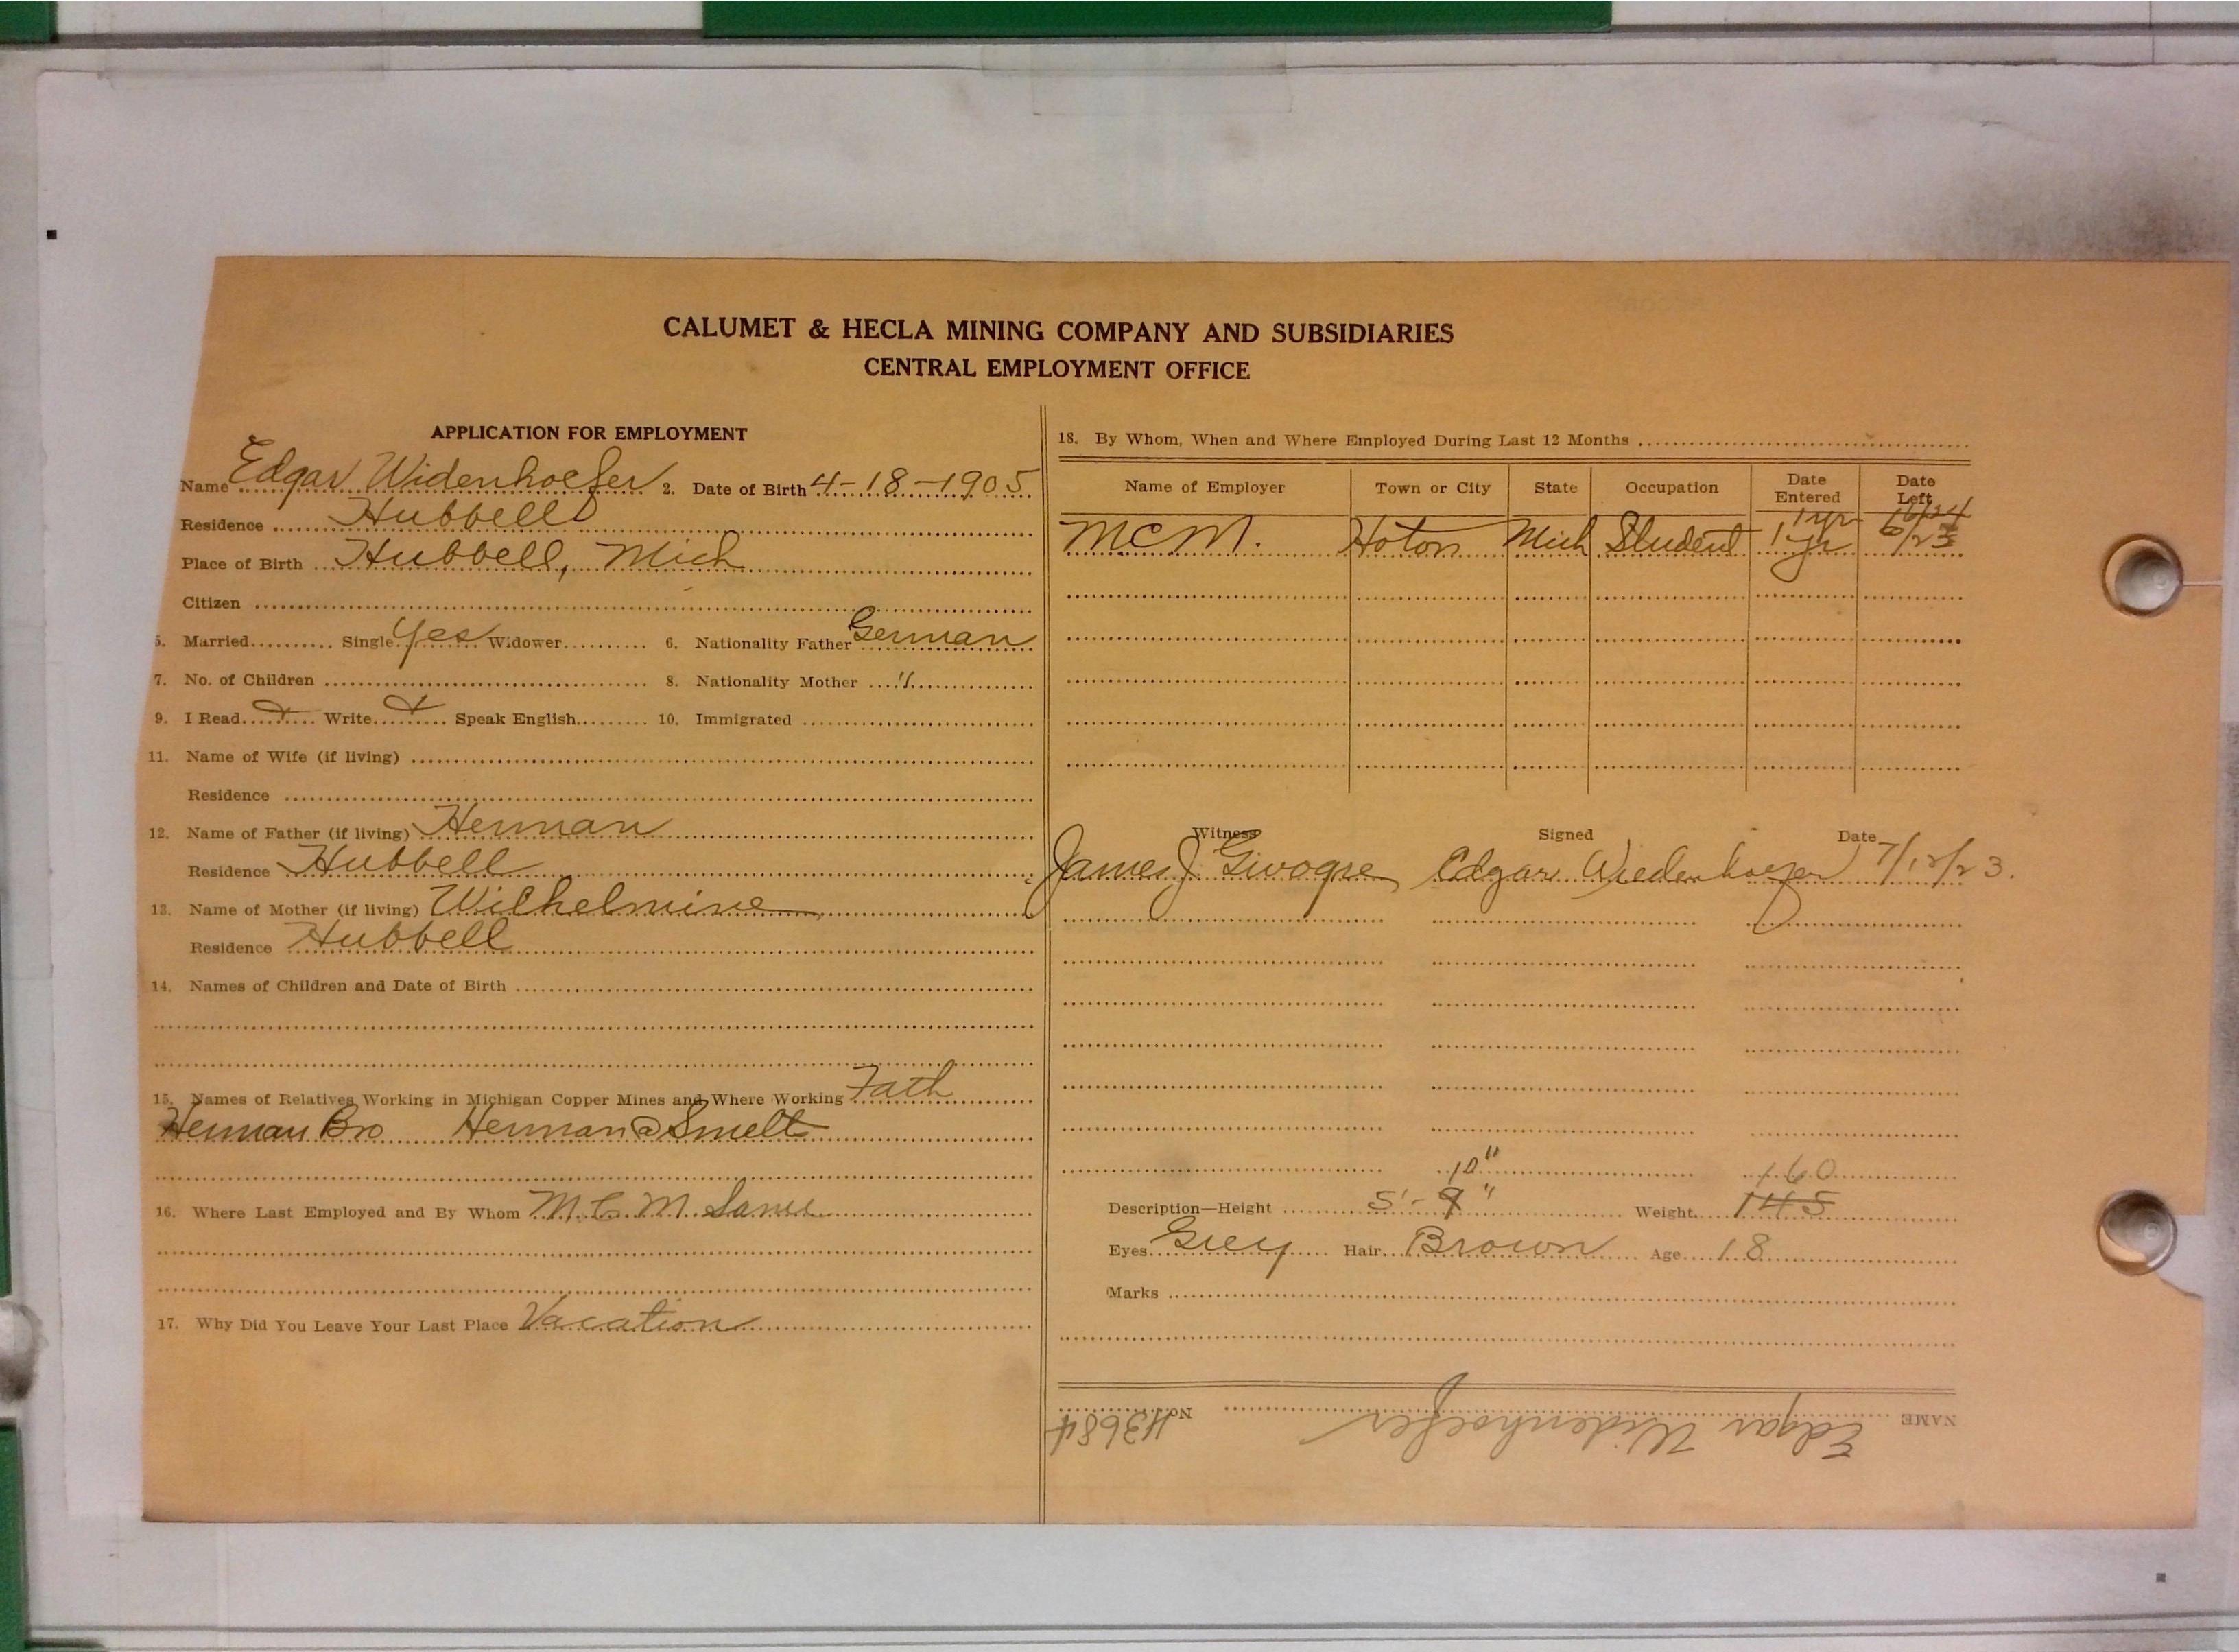 CALUMET & HECLA MINING COMPANY AND SUBSIDIARIES
CENTRAL EMPLOYMENT OFFICE
APPLICATION FOR EMPLOYMENT
Name Edgar Widenhoefer 2. Date of Birth 4-18-1905
Residence Hubbell
Place of Birth Hubbell, Mich
Citizen
5. Married Single Yes Widower 6. Nationality Father German
7. No. of Children 8. Nationality Mother "
9. I Read Write Speak English 10. Immigrated
11. Name of Wife (if living)
Residence
12. Name of Father (if living) Herman
Residence Hubbell
13. Name of Mother (if living) Wilhelmine
Residence Hubbell
14. Names of Children and Date of Birth
15. Names of Relatives Working in Michigan Copper Mines and Where Working Fath
Herman Bro Herman Smelt
16. Where Last Employed and By Whom M.C.M. Same
17. Why Did You Leave Your Last Place Vacation
18. By Whom, When and Where Employed During Last 12 Months
Name of Employer Town or City State Occupation Date Entered Date Left
1 yr 6/24
MCM. Hoton Mich Student 1 yr 6/23
Witness Signed Date
James J Edgar Wiedenhoefer 7/12/23.
10" 160
Description—Height 5'-9" Weight 145
Eyes Grey Hair Brown Age 18
Marks
NAME Edgar Widenhoefer No. H3684